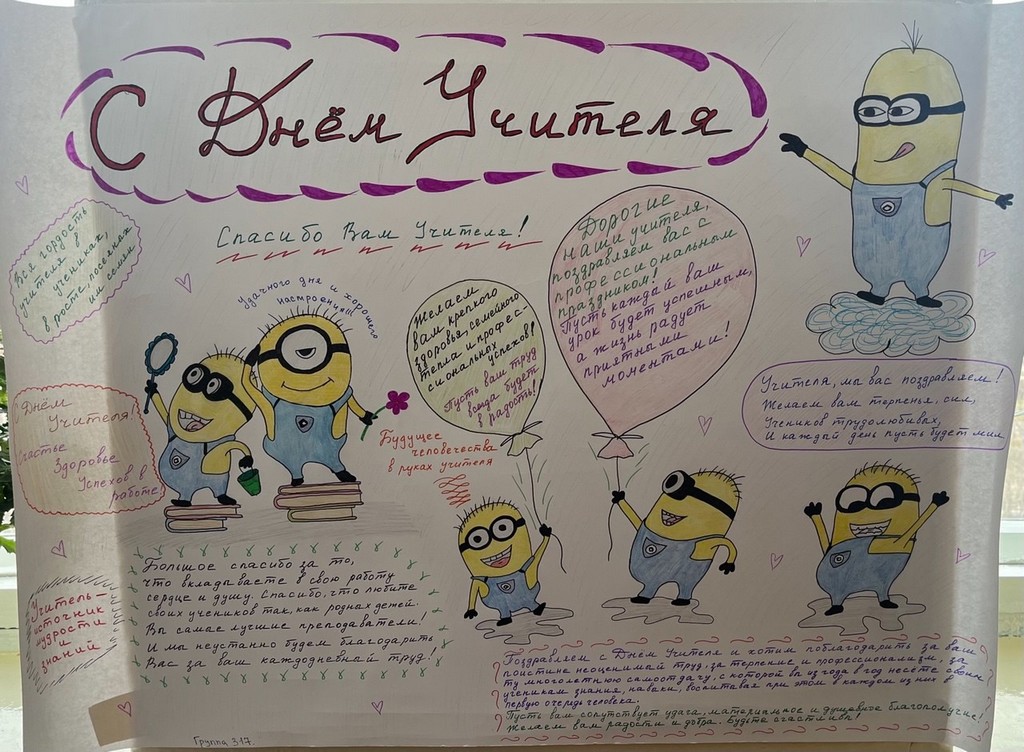 С Днём Учителя
Спасибо Вам Учителя!
Вся гордость
учителя в
учениках,
в росте, посеянных
им семян
Удачного дня и хорошего
настроения!!!
Желаем
вам крепкого
здоровья, семейного
тепла и профес-
сиональных успехов!
Пусть ваш труд
всегда будет
в радость!
Дорогие
наши учителя,
поздравляем вас с
профессиональным
праздником!
Пусть каждый ваш
урок будет успешным,
а жизнь радует
приятными
моментами!
Учителя, мы вас поздравляем!
Желаем вам терпенья, сил,
Учеников трудолюбивых,
И каждый день пусть будет мил
С Днём
Учителя!
Счастье
Здоровье
Успехов в
работе
Будущее
человечества
в руках учителя
Большое спасибо за то,
что вкладываете в свою работу
сердце и душу. Спасибо, что любите
своих учеников так, как родных детей.
Вы самые лучшие преподаватели!
И мы неустанно будем благодарить
Вас за ваш каждодневный труд!
Учитель –
источник
мудрости
и
знаний
Поздравляем с Днем Учителя и хотим поблагодарить за ваш
поистине неоценимый труд, за терпение и профессионализм, за
ту многолетнюю самоотдачу, с которой вы из года в год несете своим
ученикам знания, навыки, воспитывая при этом в каждом из них в
первую очередь человека.
Пусть вам сопутствует удача, материальное и душевное благополучие!
Желаем вам радости и добра. Будьте счастливы!
Группа 317.